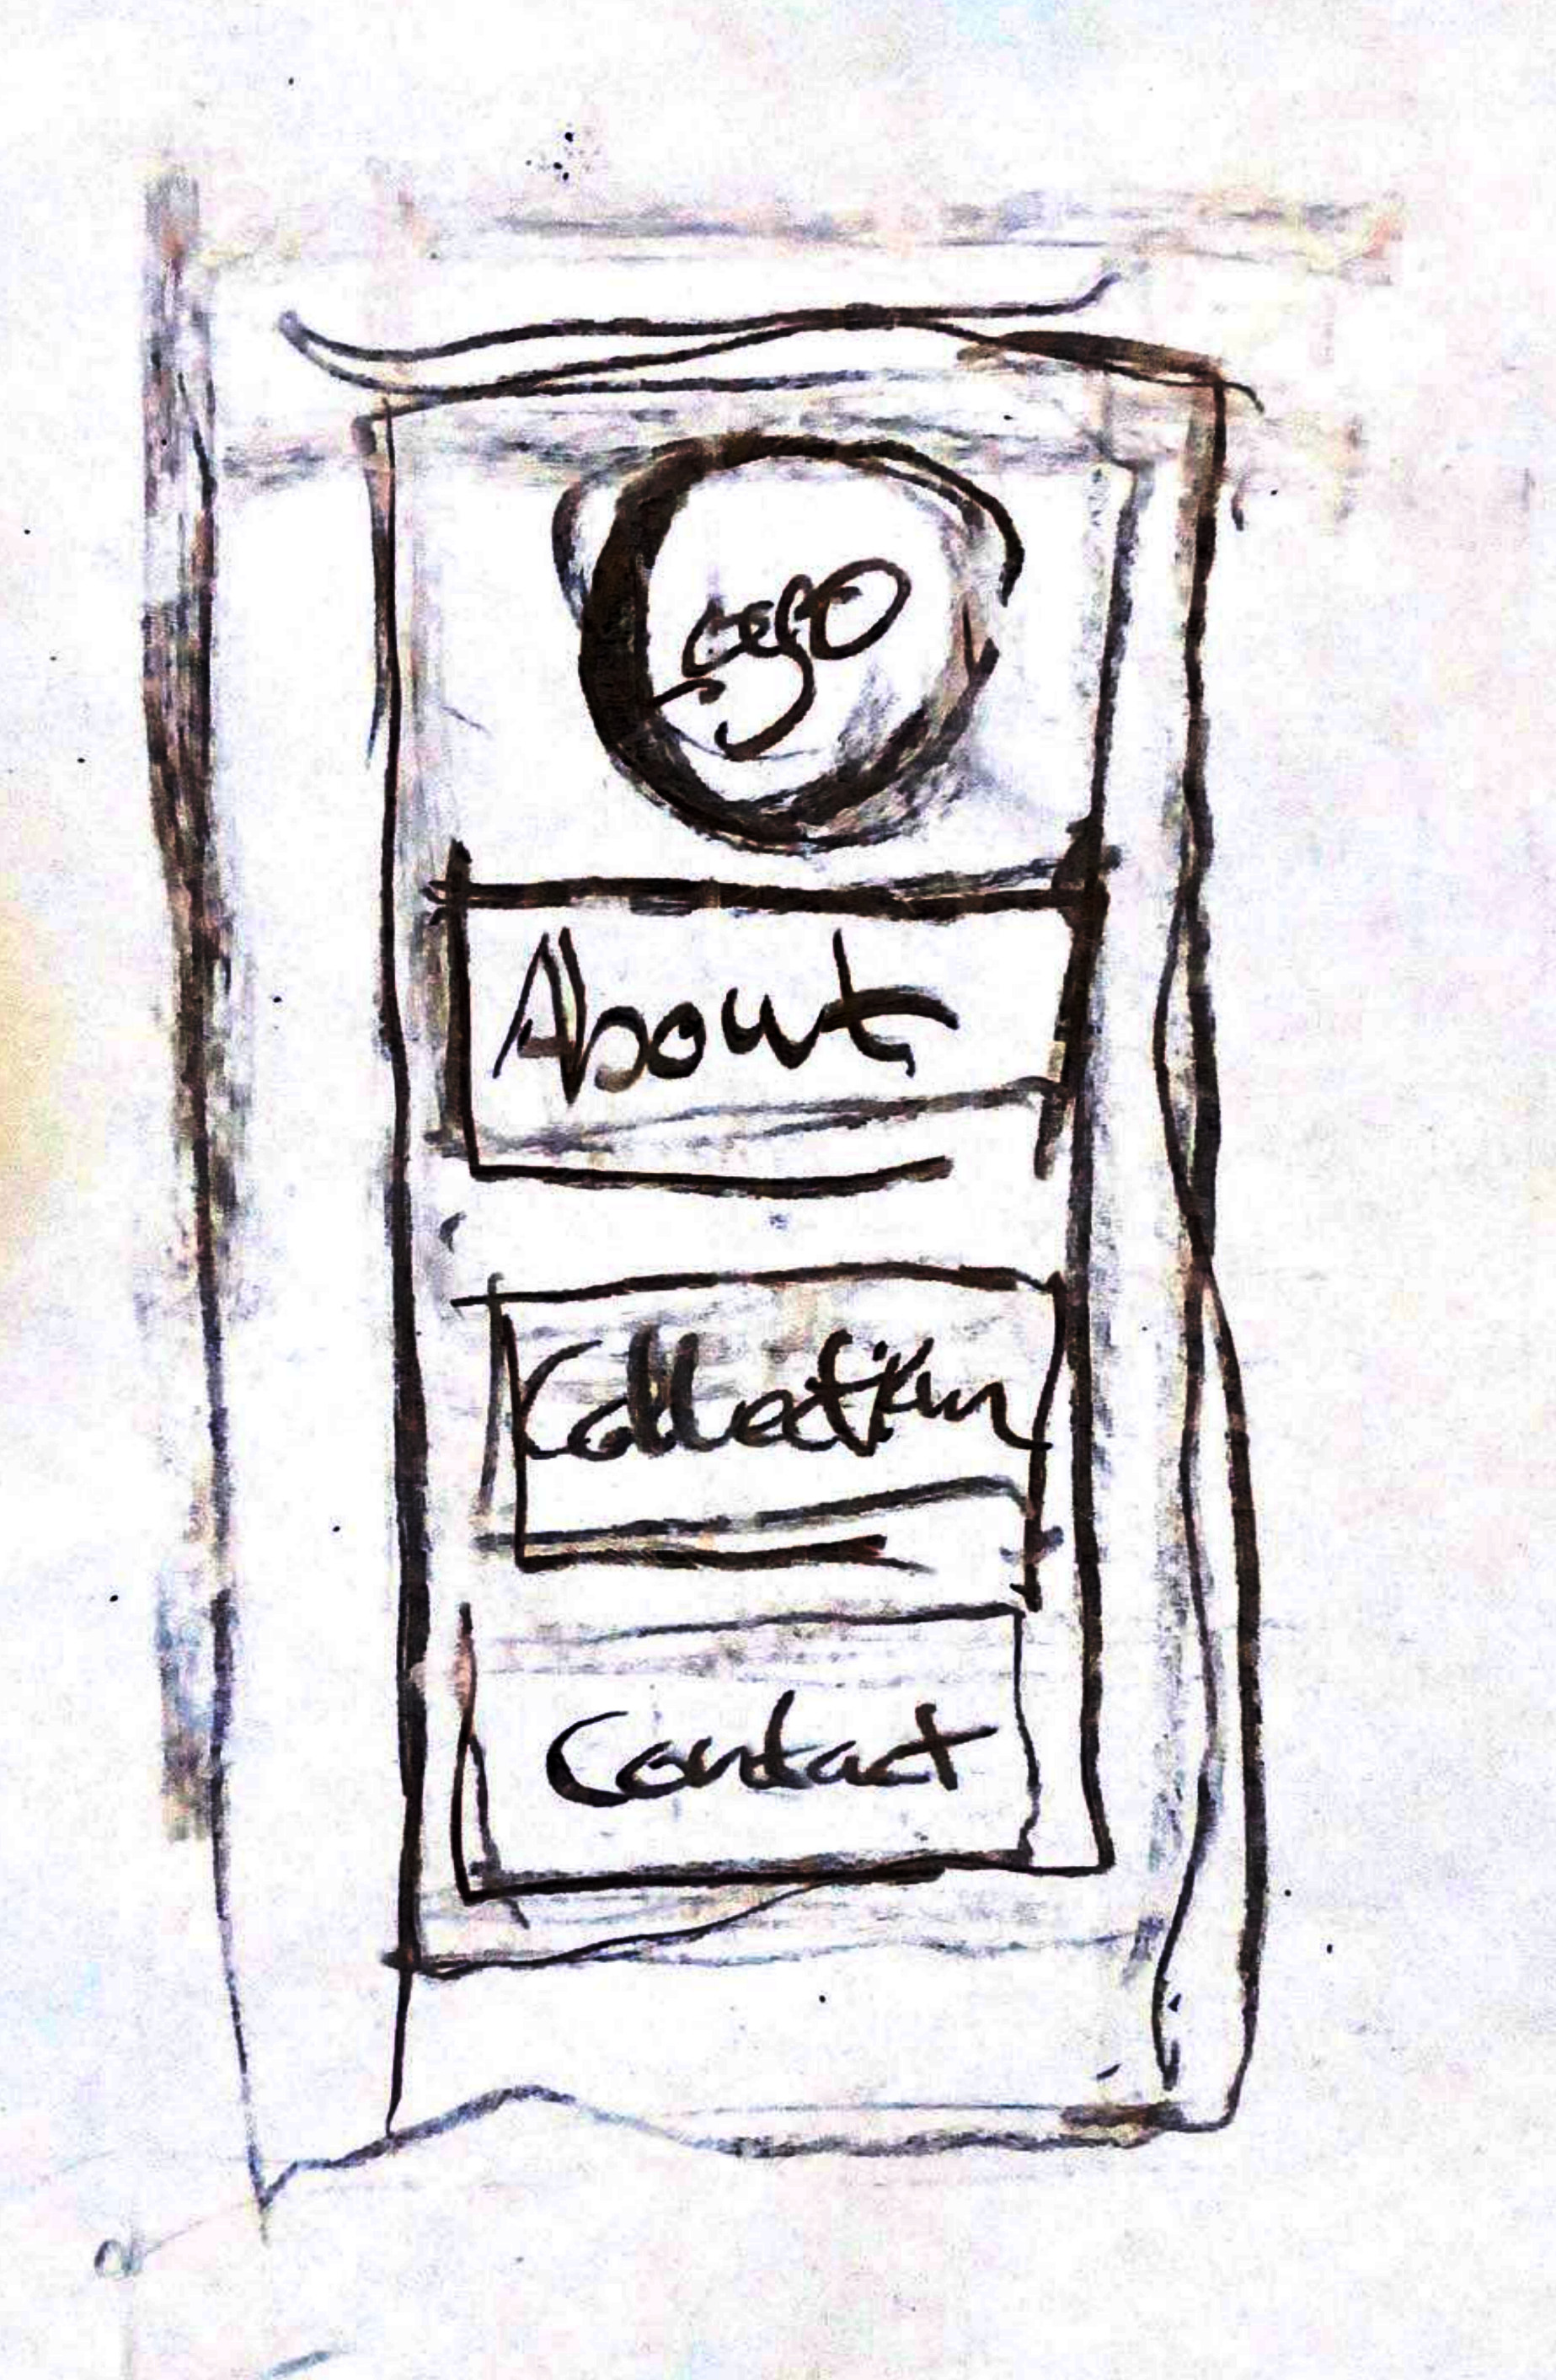 Logo
About
Collection
Contact